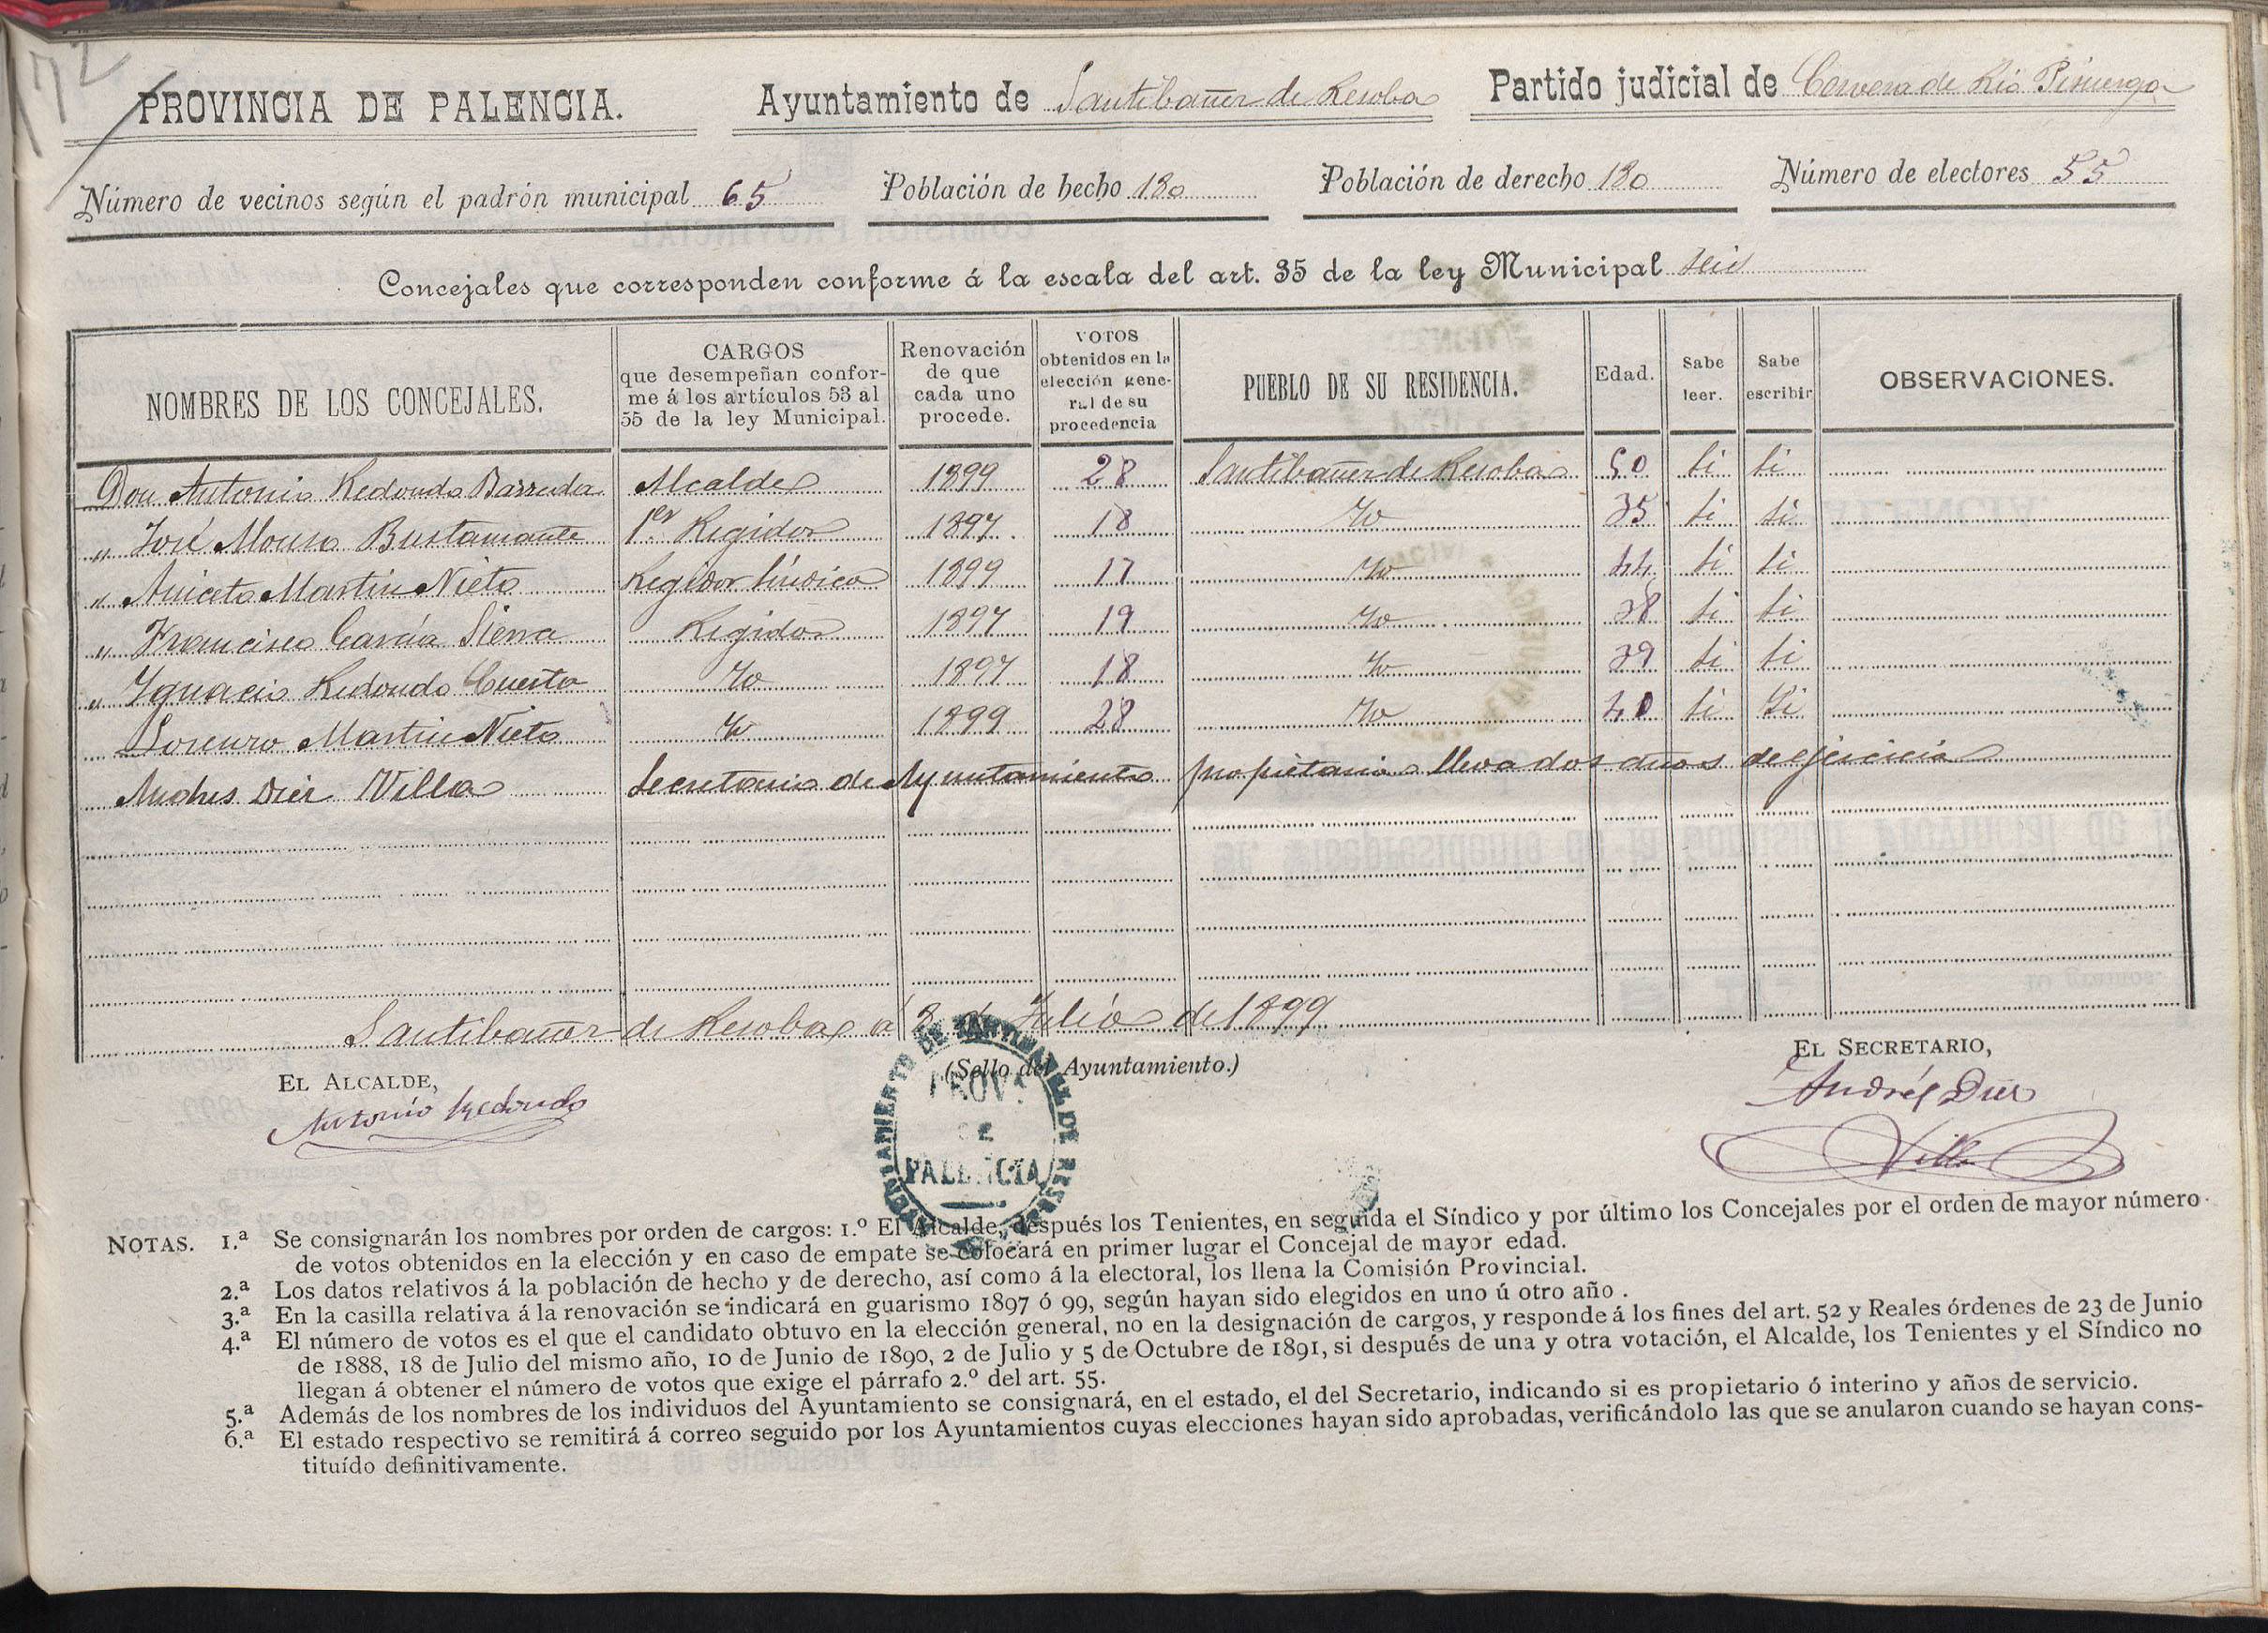 172
PROVINCIA DE PALENCIA. Ayuntamiento de Santibañez de Resoba Partido judicial de Cervera de Rio Pisuerga
Número de vecinos según el padrón municipal 65 Población de hecho 180 Población de derecho 180 Número de electores 55
Concejales que corresponden conforme á la escala del art. 35 de la ley Municipal seis
NOMBRES DE LOS CONCEJALES. CARGOS que desempeñan conforme á los artículos 53 al 55 de la ley Municipal. Renovación de que cada uno procede. VOTOS obtenidos en la elección general de su procedencia PUEBLO DE SU RESIDENCIA. Edad. Sabe leer. Sabe escribir OBSERVACIONES.
Don Antonio Redondo Barreda Alcalde 1899 28 Santibañez de Resoba 50 si si
" José Monso Bustamante 1.er Regidor 1897 18 Yd 35 si si
" Aniceto Martin Nieto Regidor Síndico 1899 17 Yd 44 si si
" Francisco García Sierra Regidor 1897 19 Yd 38 si si
" Ygnacio Redondo Cuesta Yd 1897 18 Yd 39 si si
Lorenzo Martin Nieto Yd 1899 28 Yd 40 si Si
Andres Diez Villa Secretario de Ayuntamiento propietario lleva dos años de ejercicio
Santibañez de Resoba a 8 de Julio de 1899
EL ALCALDE, (Sello del Ayuntamiento.) EL SECRETARIO,
Antonio Redondo Andrés Diez
Villa
AYUNTAMIENTO DE SANTIBAÑEZ DE RESOBA
PROVª
DE
PALENCIA
NOTAS. 1.ª Se consignarán los nombres por orden de cargos: 1.º El Alcalde, después los Tenientes, en seguida el Síndico y por último los Concejales por el orden de mayor número
de votos obtenidos en la elección y en caso de empate se colocará en primer lugar el Concejal de mayor edad.
2.ª Los datos relativos á la población de hecho y de derecho, así como á la electoral, los llena la Comisión Provincial.
3.ª En la casilla relativa á la renovación se indicará en guarismo 1897 ó 99, según hayan sido elegidos en uno ú otro año.
4.ª El número de votos es el que el candidato obtuvo en la elección general, no en la designación de cargos, y responde á los fines del art. 52 y Reales órdenes de 23 de Junio
de 1888, 18 de Julio del mismo año, 10 de Junio de 1890, 2 de Julio y 5 de Octubre de 1891, si después de una y otra votación, el Alcalde, los Tenientes y el Síndico no
llegan á obtener el número de votos que exige el párrafo 2.º del art. 55.
5.ª Además de los nombres de los individuos del Ayuntamiento se consignará, en el estado, el del Secretario, indicando si es propietario ó interino y años de servicio.
6.ª El estado respectivo se remitirá á correo seguido por los Ayuntamientos cuyas elecciones hayan sido aprobadas, verificándolo las que se anularon cuando se hayan cons-
tituído definitivamente.